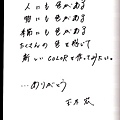 人にも色がある
物にも色がある
本箱にも色がある
たくさんの色を混ぜて
新しいCOLORを作ってみたい。
...ありがとう